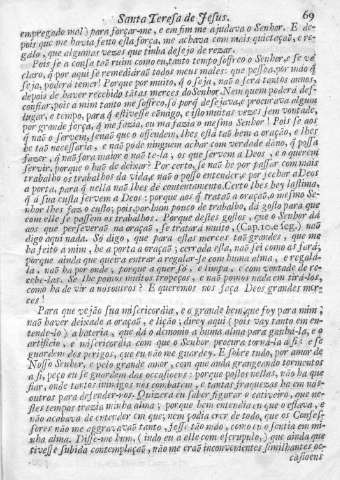 Santa Teresa de Jesus. 69
empregado mal) para forçar-me, e em fim me ajudava o Senhor. E de-
pois que me havia feito esta força, me achava com mais quietaçaõ, e re-
galo, que algumas vezes que tinha desejo de rezar.
Pois se a cousa taõ ruim como eu, tanto tempo soffreo o Senhor, e se vè
claro, q̃ por aqui se remediáraõ todos meus males: que pessoa, por màa q̃
seja, poderà temer? Porque por muito, q̃ o seja, naõ o serà tantos annos,
depois de haver recebido tantas merces do Senhor. Nem quem poderà des-
confiar, pois a mim tanto me soffreo, só porq̃ desejava, e procurava algum
lugar, e tempo, para q̃ estivesse cõmigo, e isto muitas vezes sem vontade,
por grande força, q̃ me fazia, ou ma fazia o mesmo Senhor! Pois se aos
q̃ naõ o servem, senaõ que o offendem, lhes està taõ bem a oraçaõ, e lhes
he taõ necessaria, e naõ pòde ninguem achar com verdade dãno, q̃ possa
fazer, q̃ naõ fora maior o naõ te-la, os que servem a Deos, e o querem
servir, porque o haõ de deixar? Por certo, se naõ he por passar com mais
trabalho os trabalhos da vida, e naõ o posso entender, e por fechar a Deos
a porta, para q̃ nella naõ lhes dè contentamento. Certo lhes hey lastima,
q̃ à sua custa servem a Deos: porque aos q̃ trataõ a oraçaõ, o mesmo Se-
nhor lhes faz o custo; pois por hum pouco de trabalho, dà gosto para que
com elle se passem os trabalhos. Porque destes gostos, que o Senhor dá
aos que perseveraõ na oraçaõ, se tratarà muito, (Cap. 10. e seg.) naõ
digo aqui nada. Só digo, que para estas merces taõ grandes, que me
ha feito a mim, he a porta a oraçaõ; cerrada esta, naõ sei como as farà;
porque ainda que queira entrar a regalar-se com huma alma, e regalá-
la, naõ ha por onde, porque a quer só, e limpa, e com vontade de re-
cebe-las. Se lhe pomos muitos tropeços, e naõ pomos nada em tirá-los,
como ha de vir a nosoutros? E queremos nos faça Deos grandes mer-
ces!
Para que vejaõ sua misericordia, e o grande bem, que foy para mim,
naõ haver deixado a oraçaõ, e liçaõ, direy aqui (pois vay tanto em en-
tende-lo) a bateria, que dà o demonio a huma alma para ganhá-la, e o
artificio, e misericordia com que o Senhor procura torná-la a si: e se
guardem dos perigos, que eu naõ me guardey. E sobre tudo, por amor de
Nosso Senhor, e pelo grande amor, com que anda grangeando tornemos
a si, peço eu se guardem das occasioens; porque postos nellas, naõ ha que
fiar, onde tantos inimigos nos combatem, e tantas fraquezas ha em nos-
outros para defender-nos. Quizera eu saber figurar o cativeiro, que ne-
stes tempos trazia minha alma; porque bem entendia eu que o estava, e
naõ acabava de entender em que, nem podia crer de todo, que os Confes-
sores não me aggravavaõ tanto, fosse taõ máo, como eu o sentia em mi-
nha alma. Disse-me hum, (indo eu a elle com escrupulo,) que ainda que
tivesse subida contemplaçaõ, naõ me eraõ inconvenientes similhantes oc-
casioens